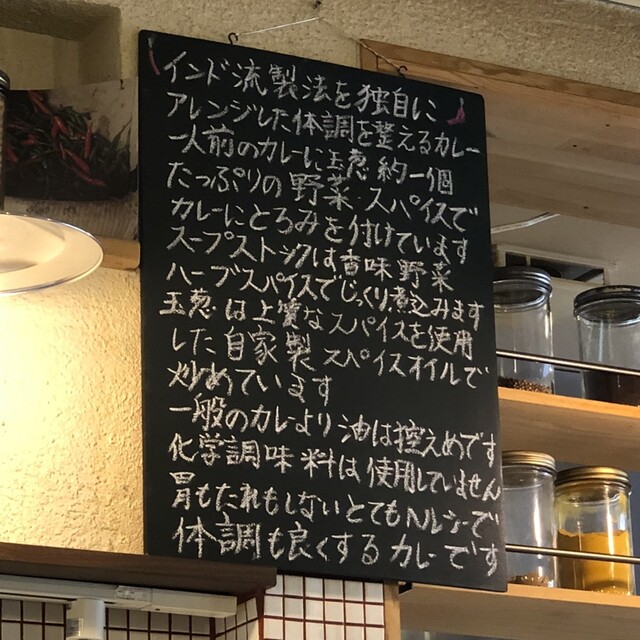 インド流製法を独自に
アレンジした体調を整えるカレー
一人前のカレーに玉葱約一個
たっぷりの野菜・スパイスで
カレーにとろみを付けています
スープストックは香味野菜
ハーブスパイスでじっくり煮込みます
玉葱は上質なスパイスを使用
した自家製スパイスオイルで
炒めています
一般のカレーより油は控えめです
化学調味料は使用していません
胃もたれもしないとてもヘルシーで
体調も良くするカレーです